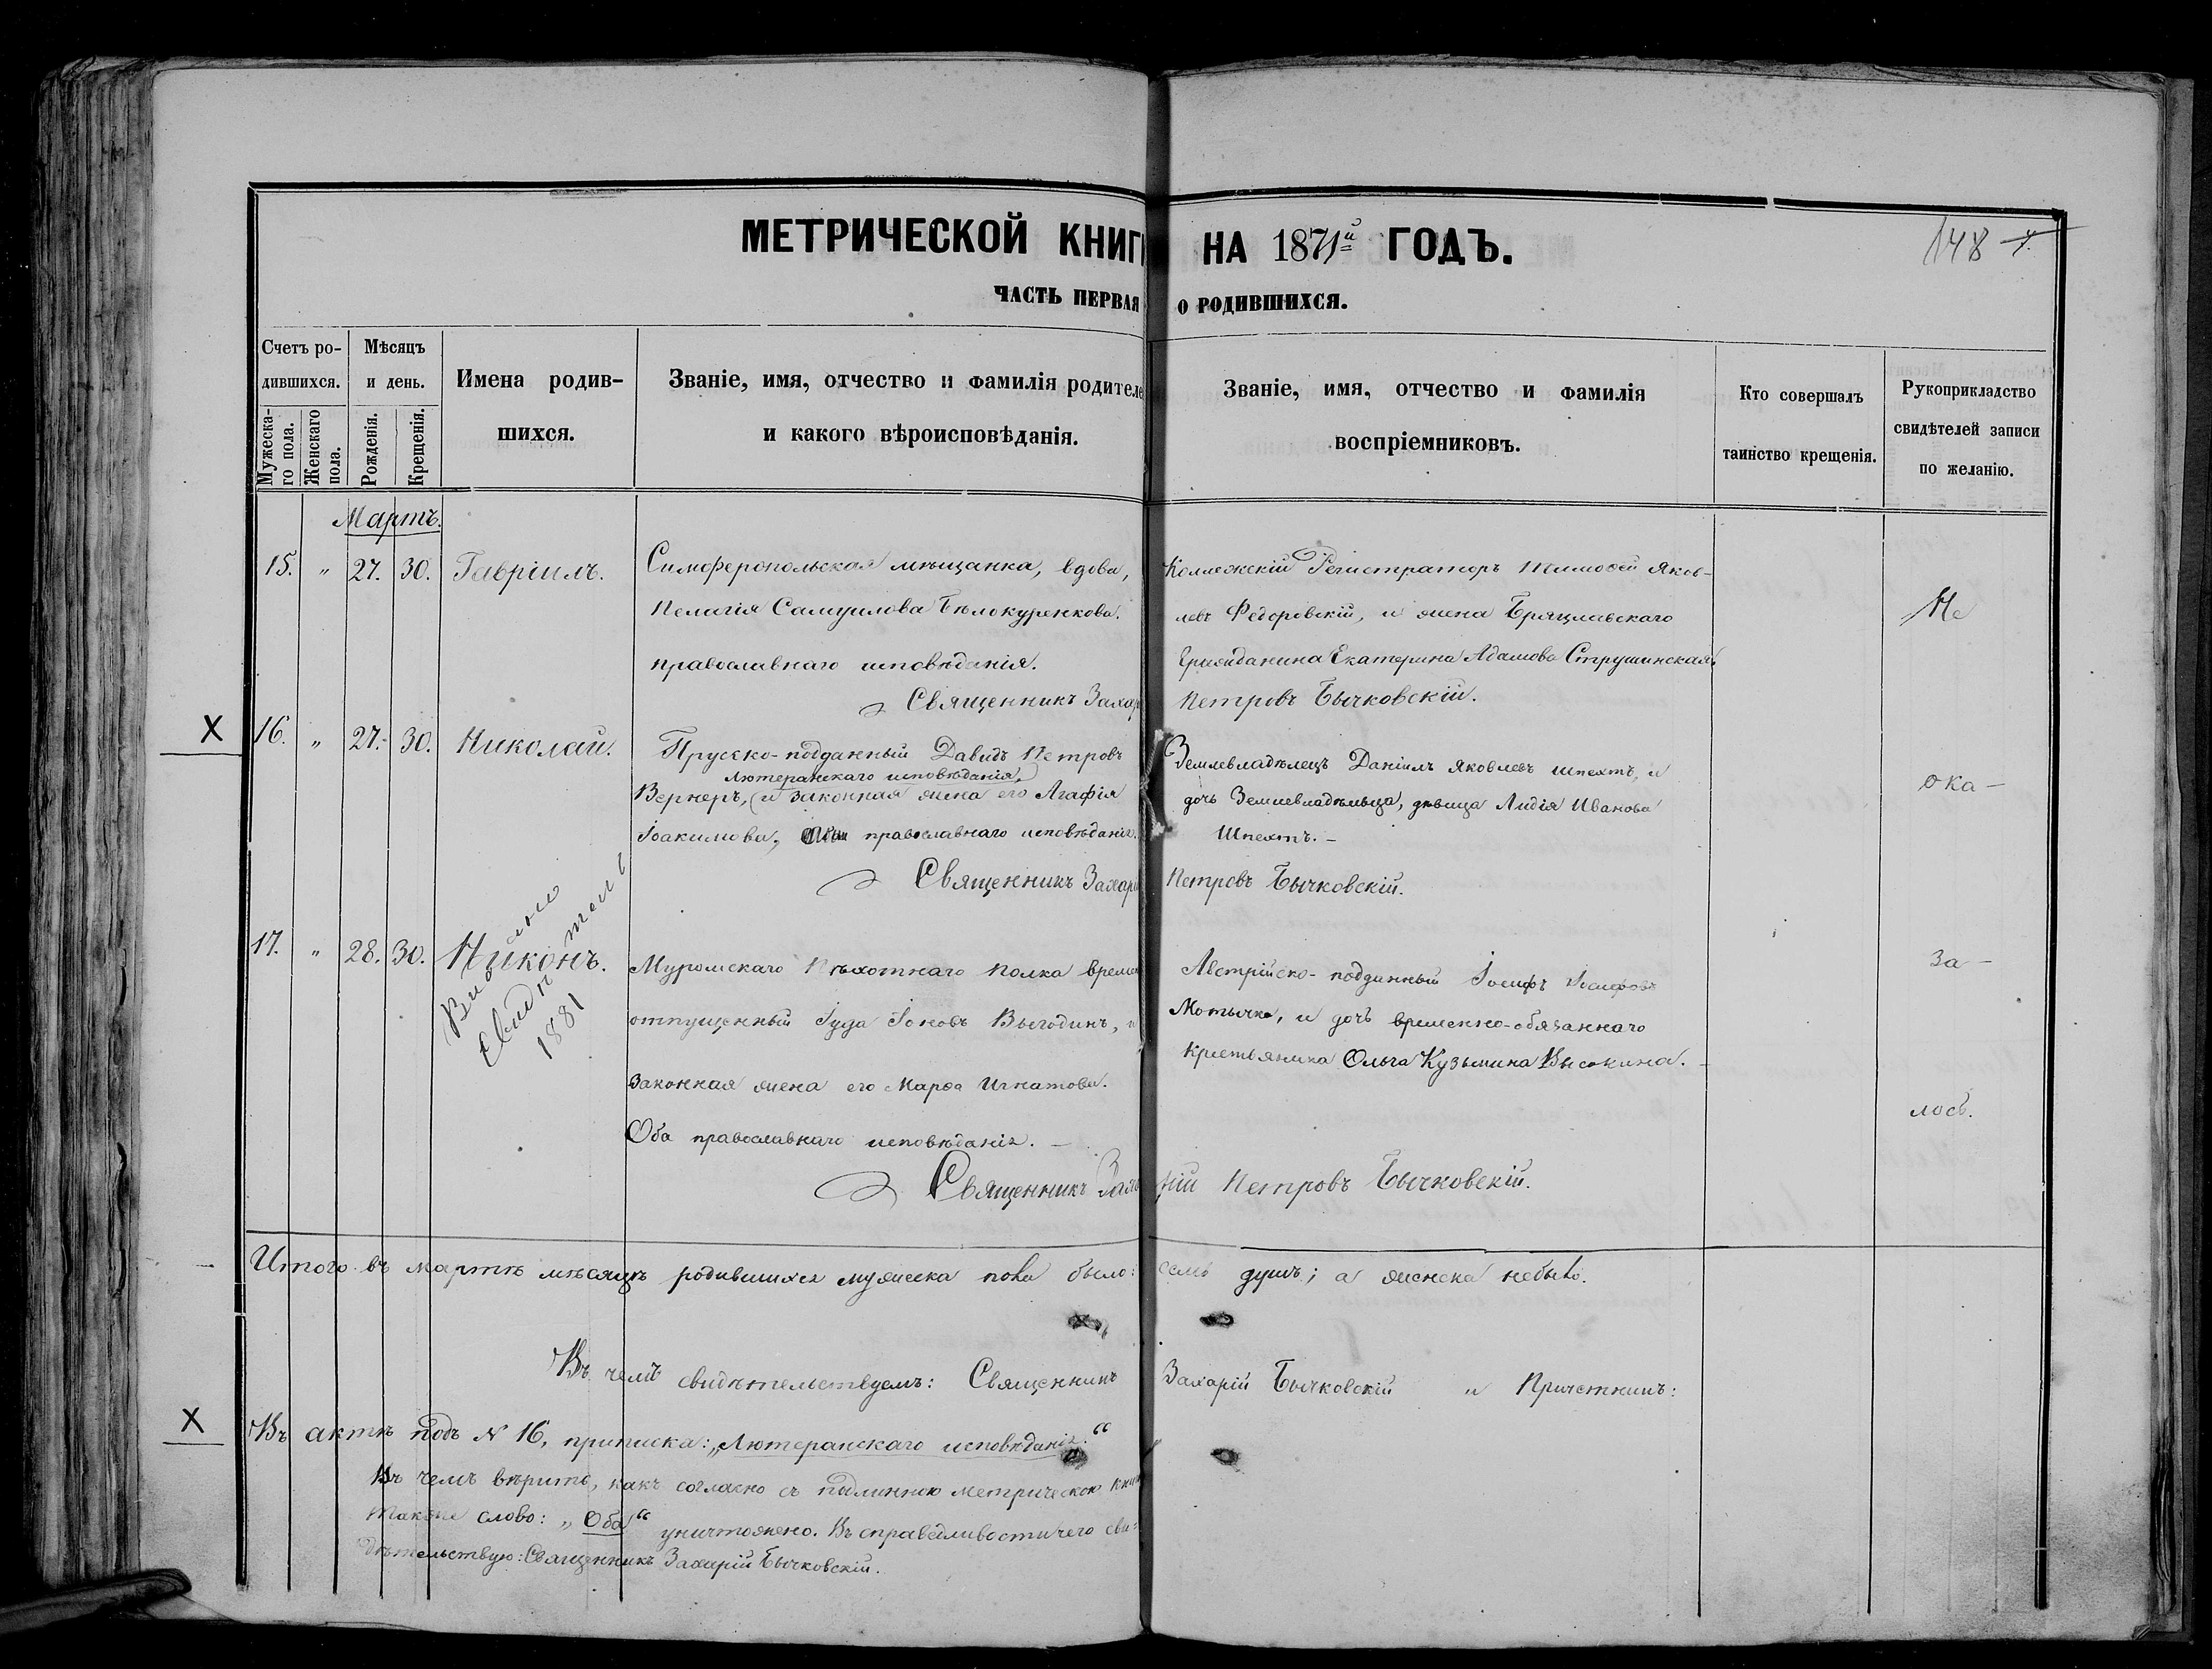 МЕТРИЧЕСКОЙ КНИГИ НА 1871й ГОДЪ.
148
ЧАСТЬ ПЕРВАЯ О РОДИВШИХСЯ.
Счетъ ро-
дившихся.
Мужеска-
го пола.
Женскаго
пола.
Мѣсяцъ
и день.
Рожденія.
Крещенія.
Имена родив-
шихся.
Званіе, имя, отчество и фамилія родителе
и какого вѣроисповѣданія.
Званіе, имя, отчество и фамилія
воспріемниковъ.
Кто совершалъ
таинство крещенія.
Рукоприкладство
свидѣтелей записи
по желанію.
Мартъ.
15. „ 27. 30. Гавріилъ.
Симферопольская мѣщанка, вдова,
Пелагія Самуилова Бѣлокуренкова.
православнаго исповѣданія.
Священникъ Захар
Коллежскій Регистраторъ Тимоѳей Яков-
левъ Федоровскій, и жена Брацлавскаго
гражданина Екатерина Адамова Струшинская.
Петровъ Бычковскій.
Не
X 16. „ 27. 30. Николай.
Прусско-подданный Давидъ Петровъ
лютеранскаго исповѣданія,
Вернеръ, (и законная жена его Агафія
Іоакимова, православнаго исповѣданія.
Священникъ Захарі
Землевладѣлецъ Даніилъ Яковлевъ Шпехтъ, и
дочь Землевладѣльца, дѣвица Лидія Иванова
Шпехтъ. –
Петровъ Бычковскій.
ока –
17. „ 28. 30. Никонъ.
1881
Муромскаго Пѣхотнаго полка времен
отпущенный Іуда Іоновъ Выгодинъ, и
законная жена его Марѳа Игнатова.
Оба православнаго исповѣданія. –
Священникъ Заха
Австрійско-подданный Іосифъ Іосифовъ
Мотычко, и дочь временно-обязаннаго
крестьянина Ольга Кузьмина Высокина. –
рій Петровъ Бычковскій.
за –
лось.
Итого въ мартѣ мѣсяцѣ родившихся мужеска пола было: семь душъ; а женска небыло.
Въ чемъ свидѣтельствуемъ: Священникъ Захарій Бычковскій и Причетникъ:
X Въ актѣ подъ N 16, приписка: „Лютеранскаго исповѣданія.“
Въ чемъ вѣрить, какъ согласно съ подлинною метрическою книг
Такоже слово: „Оба“ уничтожено. Въ справедливости чего сви-
дѣтельствую: Священникъ Захарій Бычковскій.